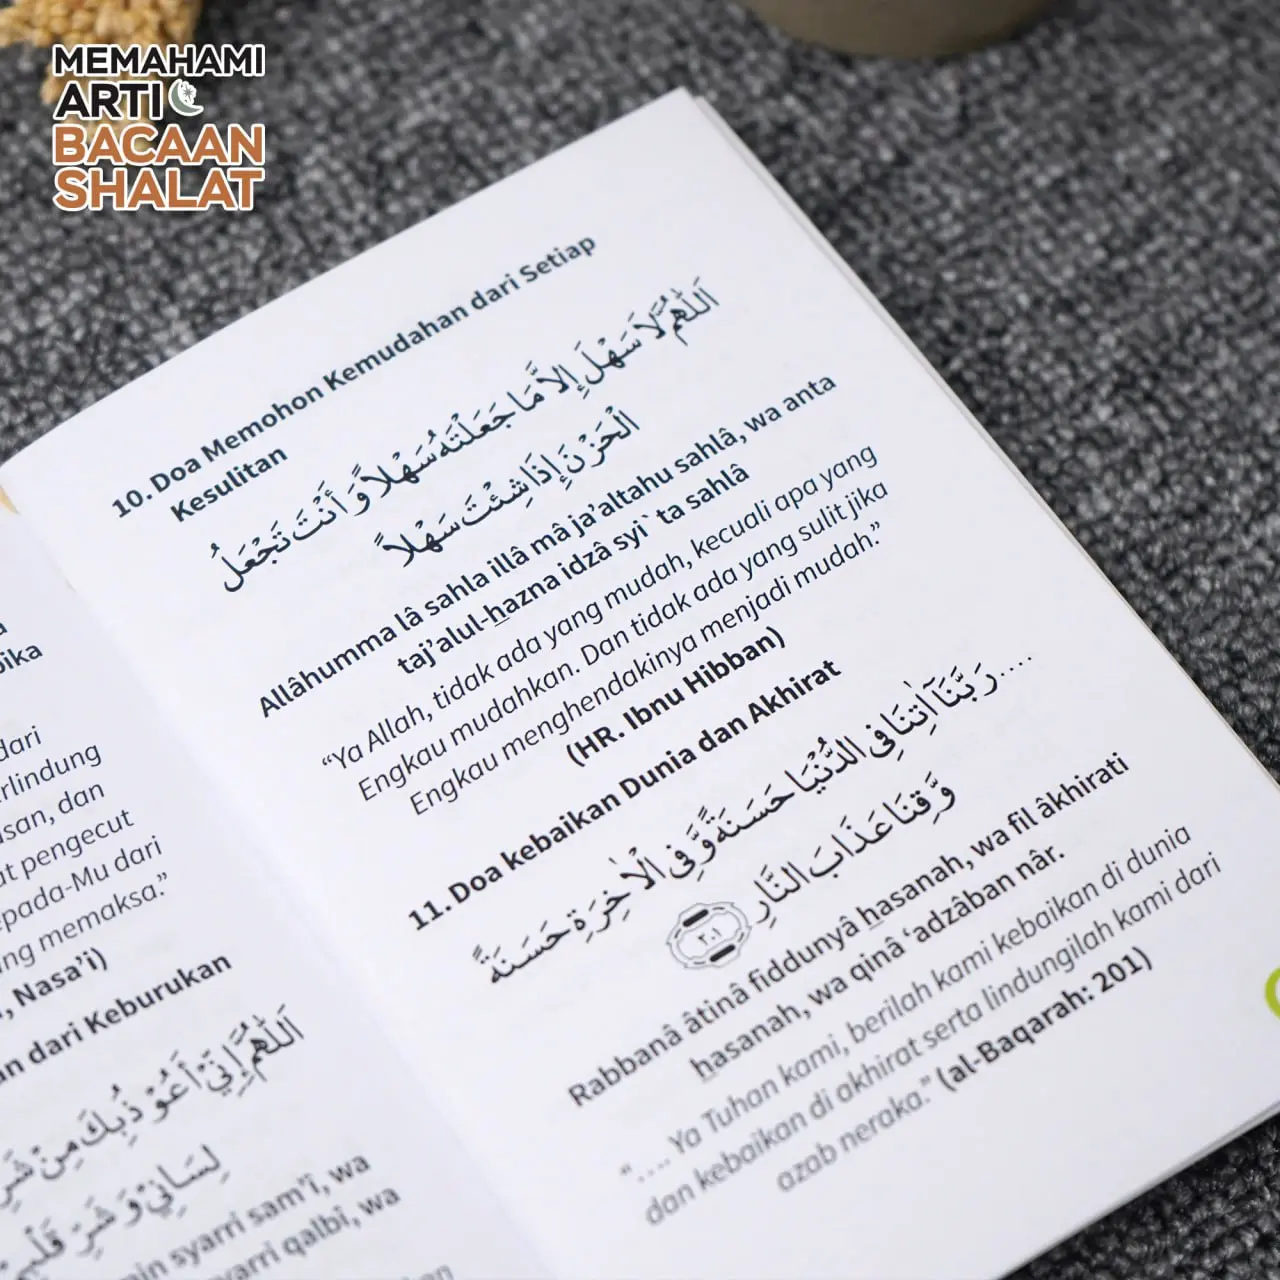 MEMAHAMI
ARTI
BACAAN
SHALAT
dari
erlindung
dan
pengecut
epada-Mu dari
memaksa.”
Nasa’i)
dari Keburukan
اَللّٰهُمَّ إِنِّيْ أَعُوْذُبِكَ مِنْ شَرِّ
لِسَانِيْ وَشَرِّ
syarri sam’î, wa
qalbî, wa
10. Doa Memohon Kemudahan dari Setiap
Kesulitan
اَللّٰهُمَّ لَا سَهْلَ إِلاَّ مَا جَعَلْتَهُ سَهْلاً وَ أَنْتَ تَجْعَلُ
الْحَزْنَ إِذَا شِئْتَ سَهْلاً
Allâhumma lâ sahla illâ mâ ja’altahu sahlâ, wa anta
taj’alul-hazna idzâ syi`ta sahlâ
“Ya Allah, tidak ada yang mudah, kecuali apa yang
Engkau mudahkan. Dan tidak ada yang sulit jika
Engkau menghendakinya menjadi mudah.”
(HR. Ibnu Hibban)
11. Doa kebaikan Dunia dan Akhirat
.... رَبَّنَآ اٰتِنَا فِى الدُّنْيَا حَسَنَةً وَّفِى الْاٰخِرَةِ حَسَنَةً
وَّقِنَا عَذَابَ النَّارِ ٢٠١
Rabbanâ âtinâ fiddunyâ hasanah, wa fil âkhirati
hasanah, wa qinâ ‘adzâban nâr.
“.... Ya Tuhan kami, berilah kami kebaikan di dunia
dan kebaikan di akhirat serta lindungilah kami dari
azab neraka.” (al-Baqarah: 201)